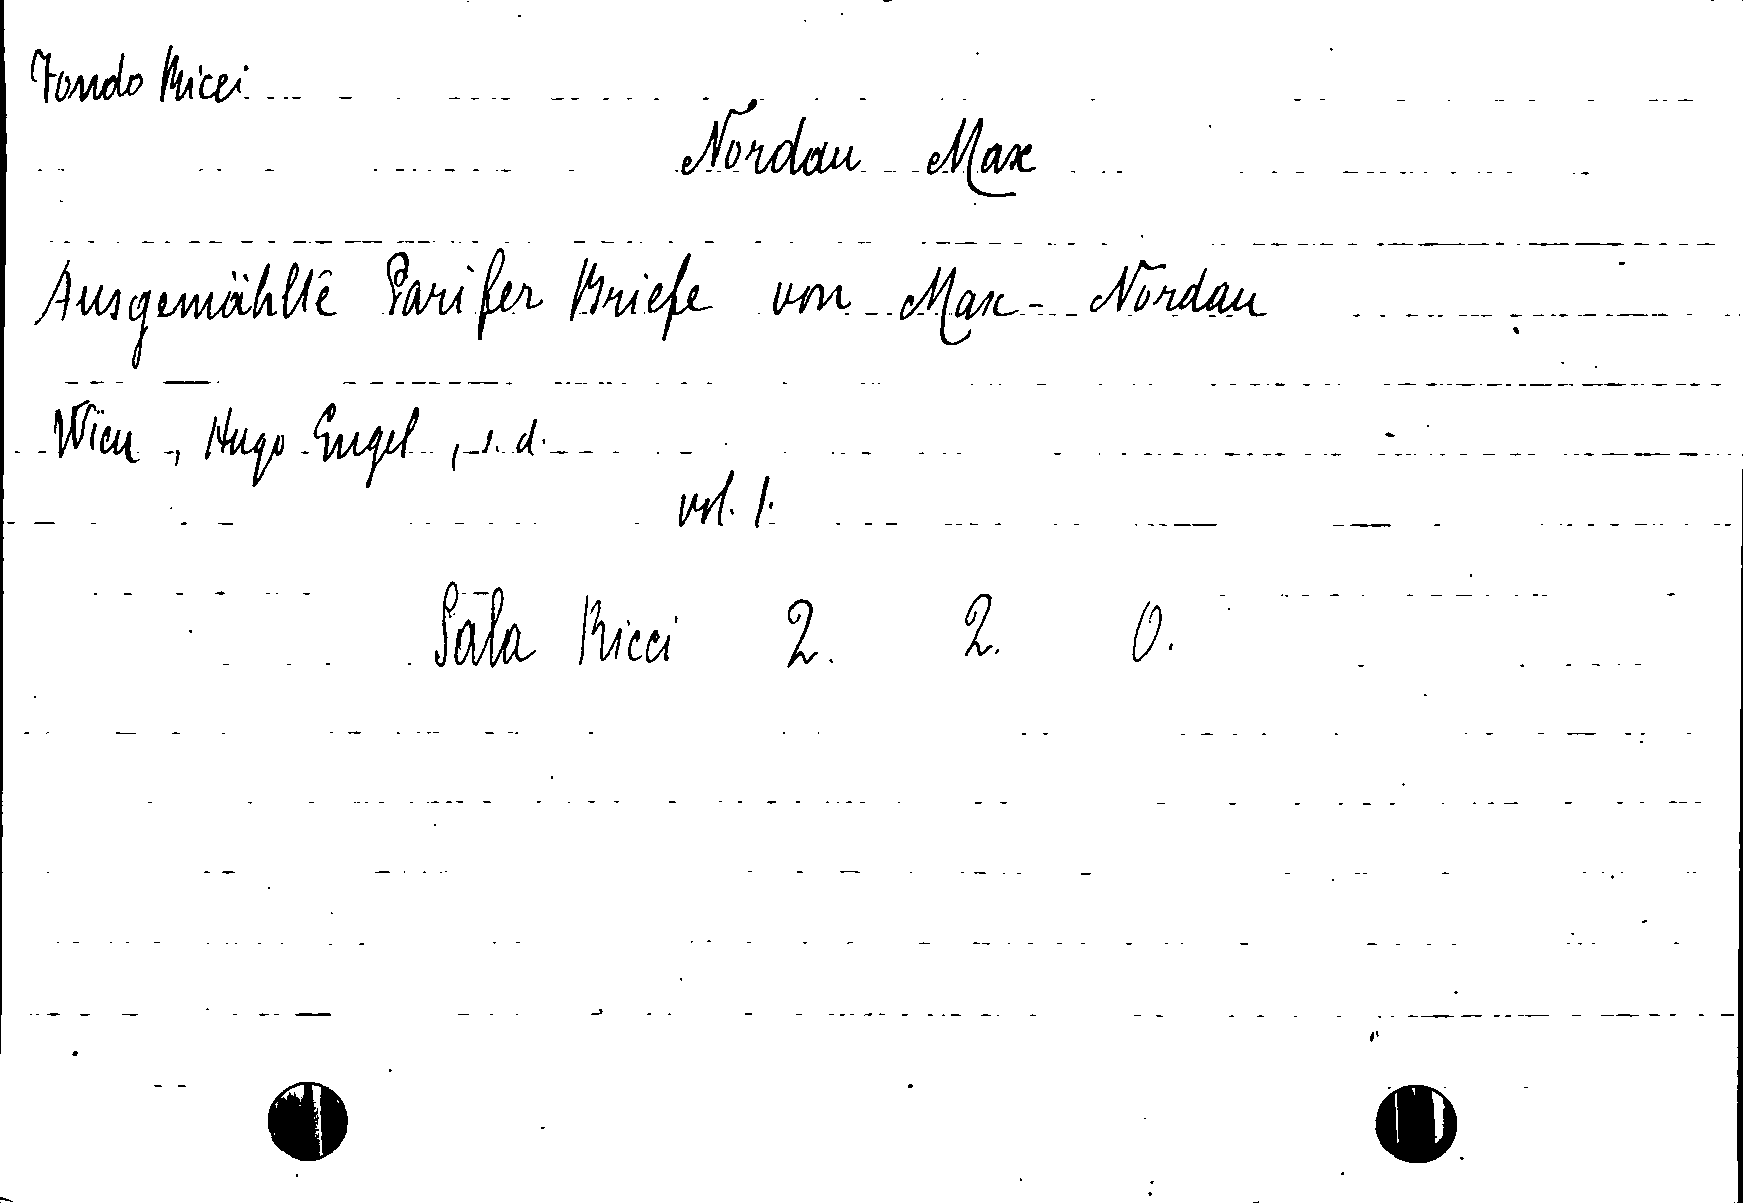 Fondo Ricci
Nordau Max
Ausgemählte Parifer Briefe von Max-Nordau
Wien, Hugo Engel, s.d.
vol. 1.
Sala Ricci 2. 2. 0.